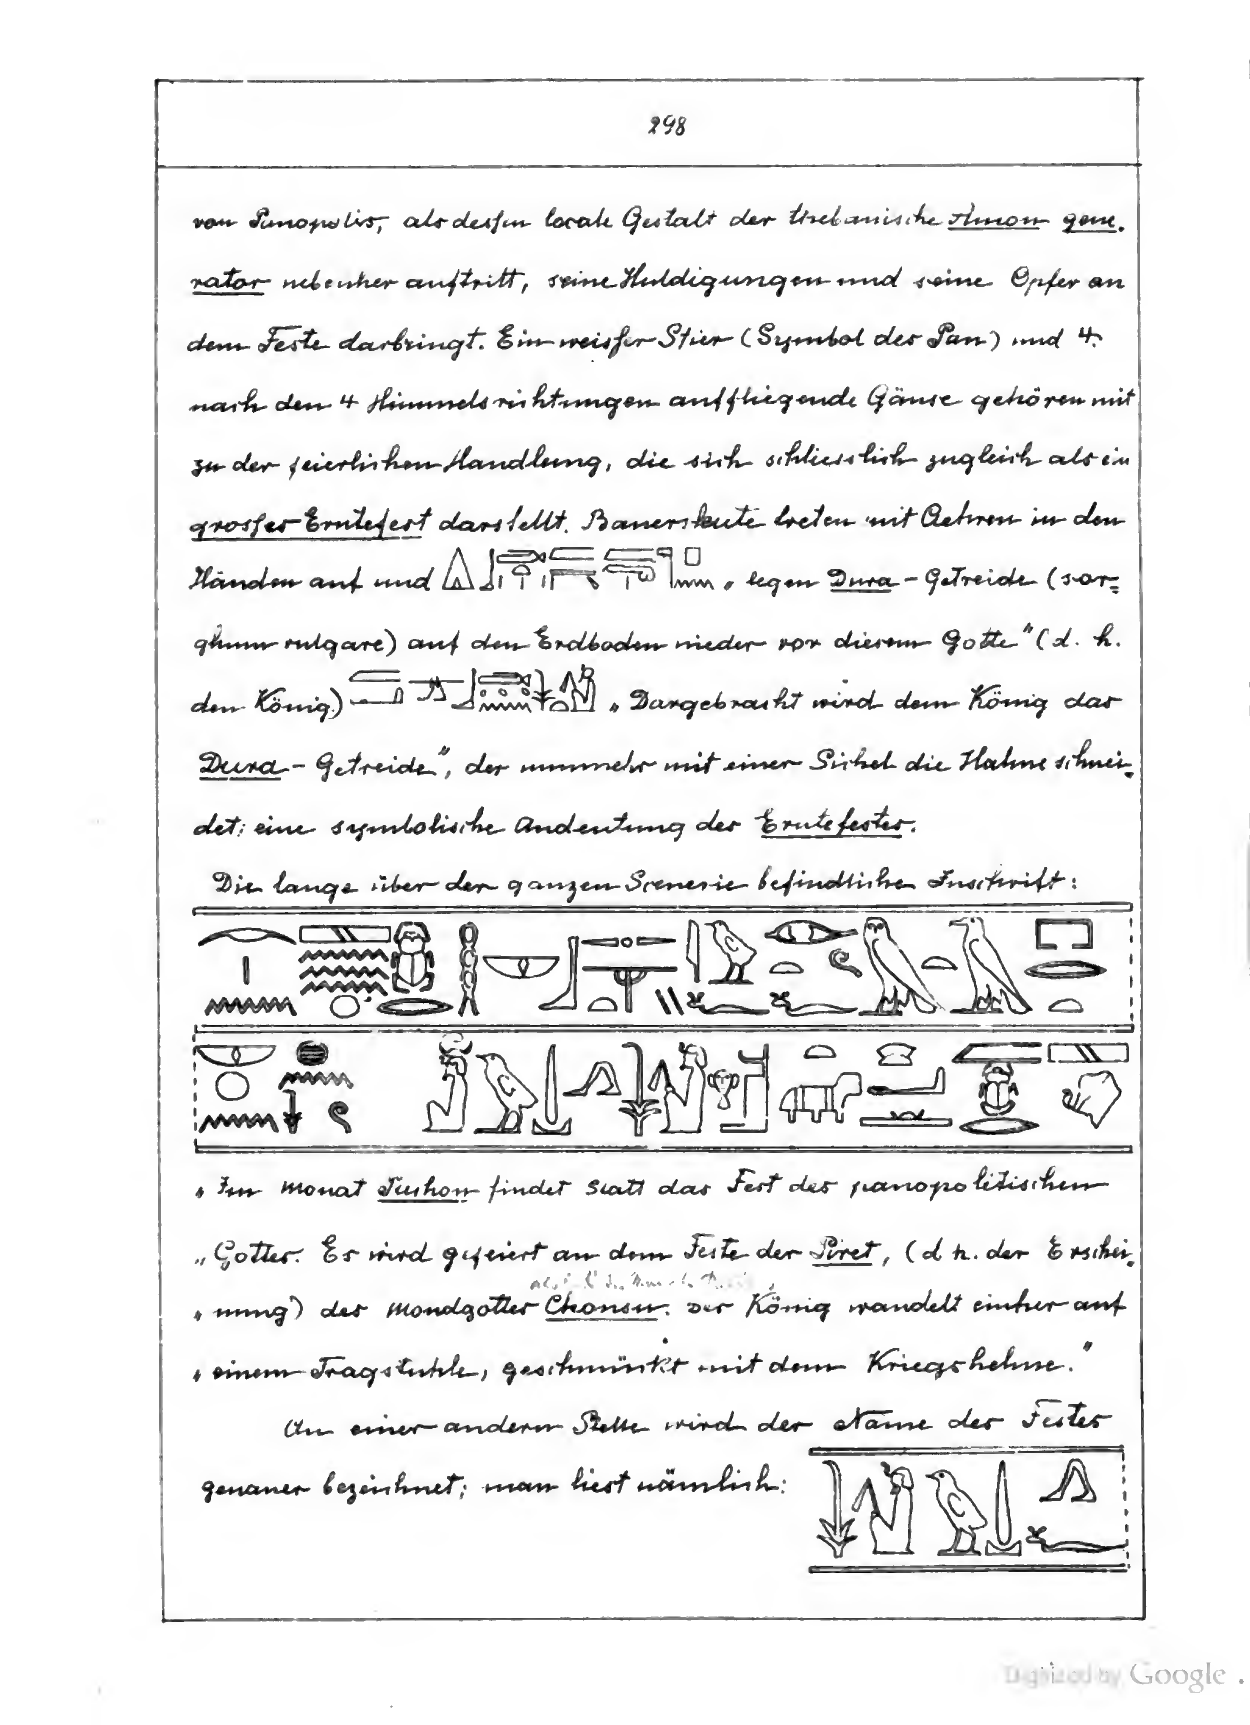 298
von Panopolis, als dessen locale Gestalt der thebanische Amon gene-
rator nebenher auftritt, seine Huldigungen und seine Opfer an
dem Feste darbringt. Ein weisser Stier (Symbol des Pan) und 4
nach den 4 Himmelsrichtungen auffliegende Gänse gehören mit
zu der feierlichen Handlung, die sich schliesslich zugleich als ein
grosses Erntefest darstellt. Bauersleute treten mit Aehren in den
Händen auf und „legen Dura-Getreide (sor-
ghum vulgare) auf den Erdboden nieder vor diesem Gotte" (d. h.
den König) „Dargebracht wird dem König das
Dura-Getreide", der nunmehr mit einer Sichel die Halme schnei-
det: eine symbolische Andeutung des Erntefestes.
Die lange über der ganzen Scenerie befindliche Inschrift:
„Im Monat Pachon findet statt das Fest des panopolitischen
„Gottes. Es wird gefeiert an dem Feste der Piret, (d. h. der Erschei-
„nung) des Mondgottes Chonsu. Der König wandelt einher auf
„einem Tragstuhle, geschmückt mit dem Kriegshelme."
An einer anderen Stelle wird der Name des Festes
genauer bezeichnet; man liest nämlich:
Digitized by Google